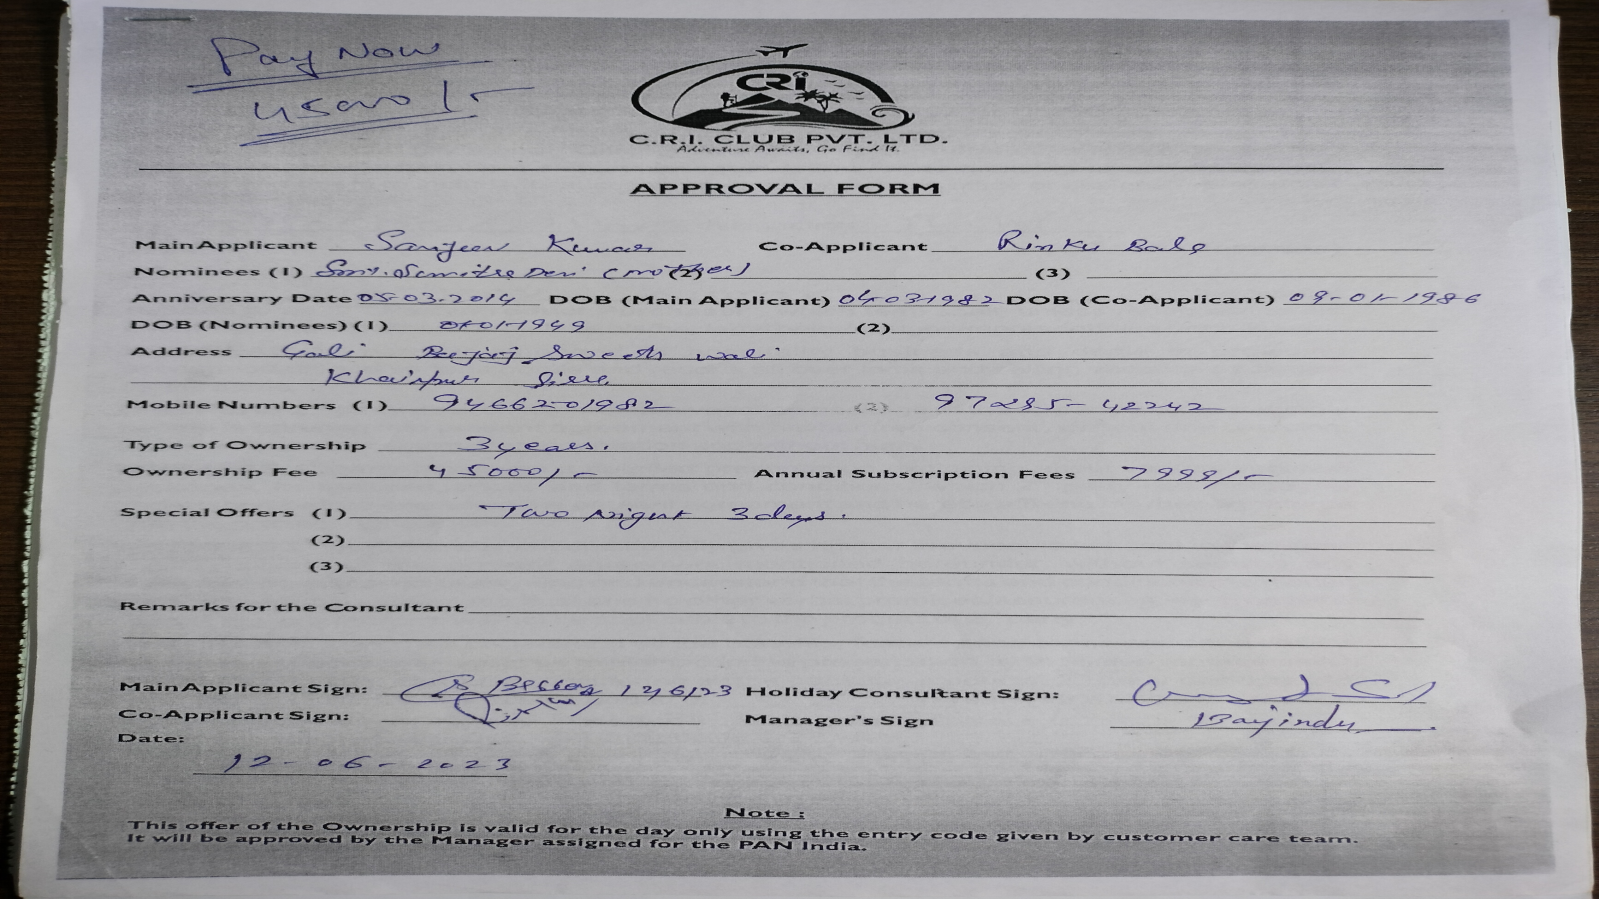 Pay Now
45000/-
CRi
C.R.I. CLUB PVT. LTD.
Adventure Awaits, Go Find It.
APPROVAL FORM
Main Applicant Sanjeev Kumar Co-Applicant Rinku Bala
Nominees (1) Smt. Sumitra Devi (mother) (2) (3)
Anniversary Date 05-03-2014 DOB (Main Applicant) 04-03-1982 DOB (Co-Applicant) 09-01-1986
DOB (Nominees) (1) 01-01-1949 (2)
Address Gali Sweets wali
Khairpur Sirsa
Mobile Numbers (1) 9466201982 (2)
Type of Ownership 3 years.
Ownership Fee 45000/- Annual Subscription Fees 7999/-
Special Offers (1) Two Night 3 days.
(2)
(3)
Remarks for the Consultant
Main Applicant Sign: 12/6/23 Holiday Consultant Sign:
Co-Applicant Sign: Manager's Sign
Date:
12-06-2023
Note :
This offer of the Ownership is valid for the day only using the entry code given by customer care team.
It will be approved by the Manager assigned for the PAN India.